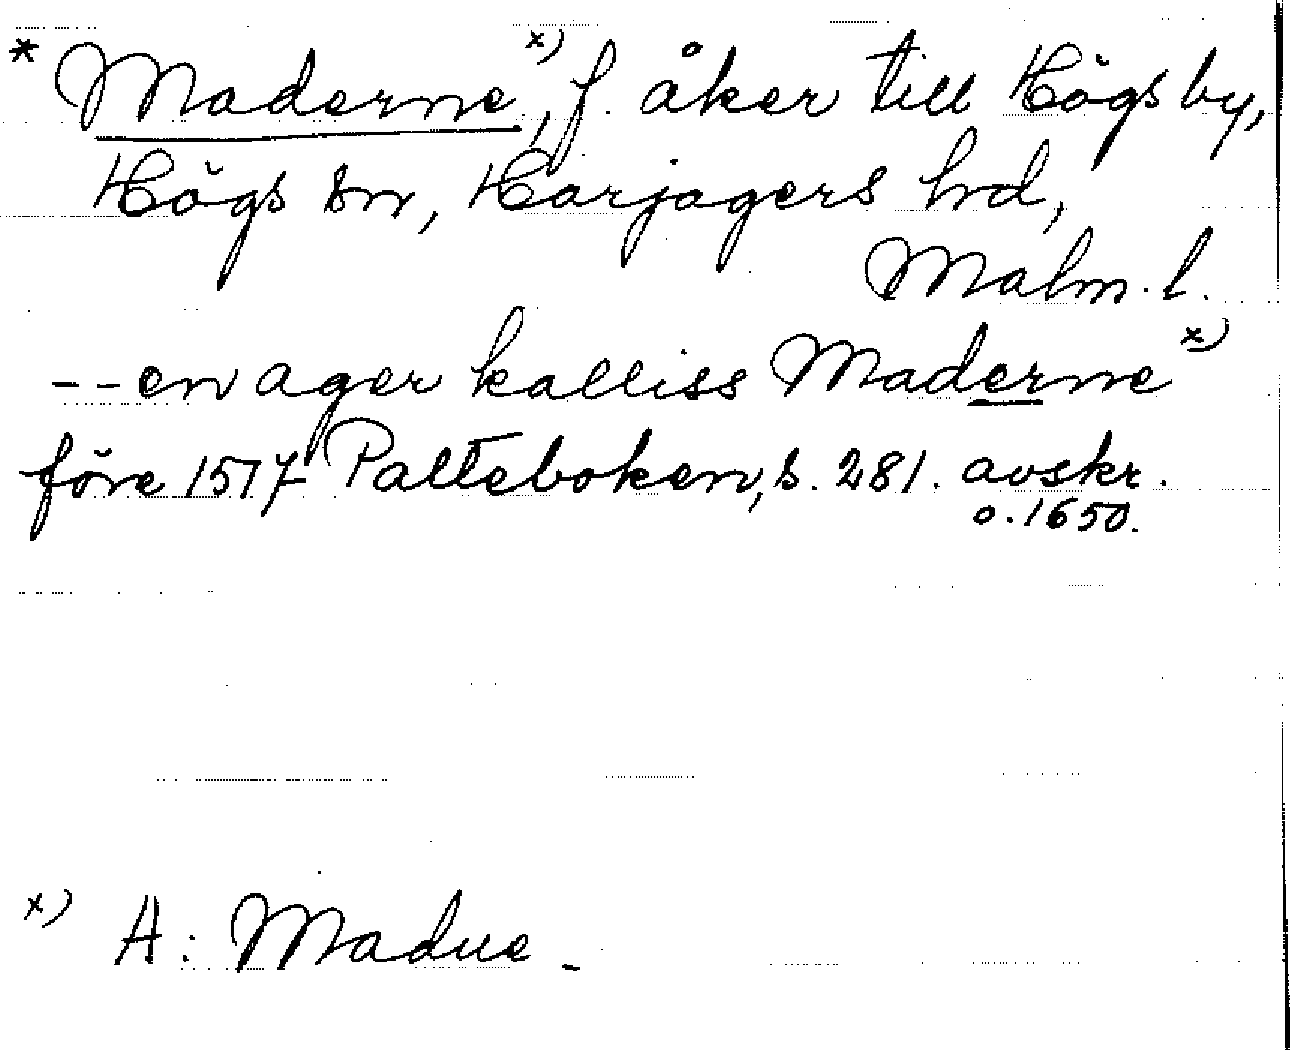 * Maderne x), f. åker till Högs by,
Högs sn, Harjagers hd,
Malm. l.
-- en ager kalliss Maderne x)
före 1517 Palteboken, s. 281. avskr.
o. 1650.
x) A: Madue -